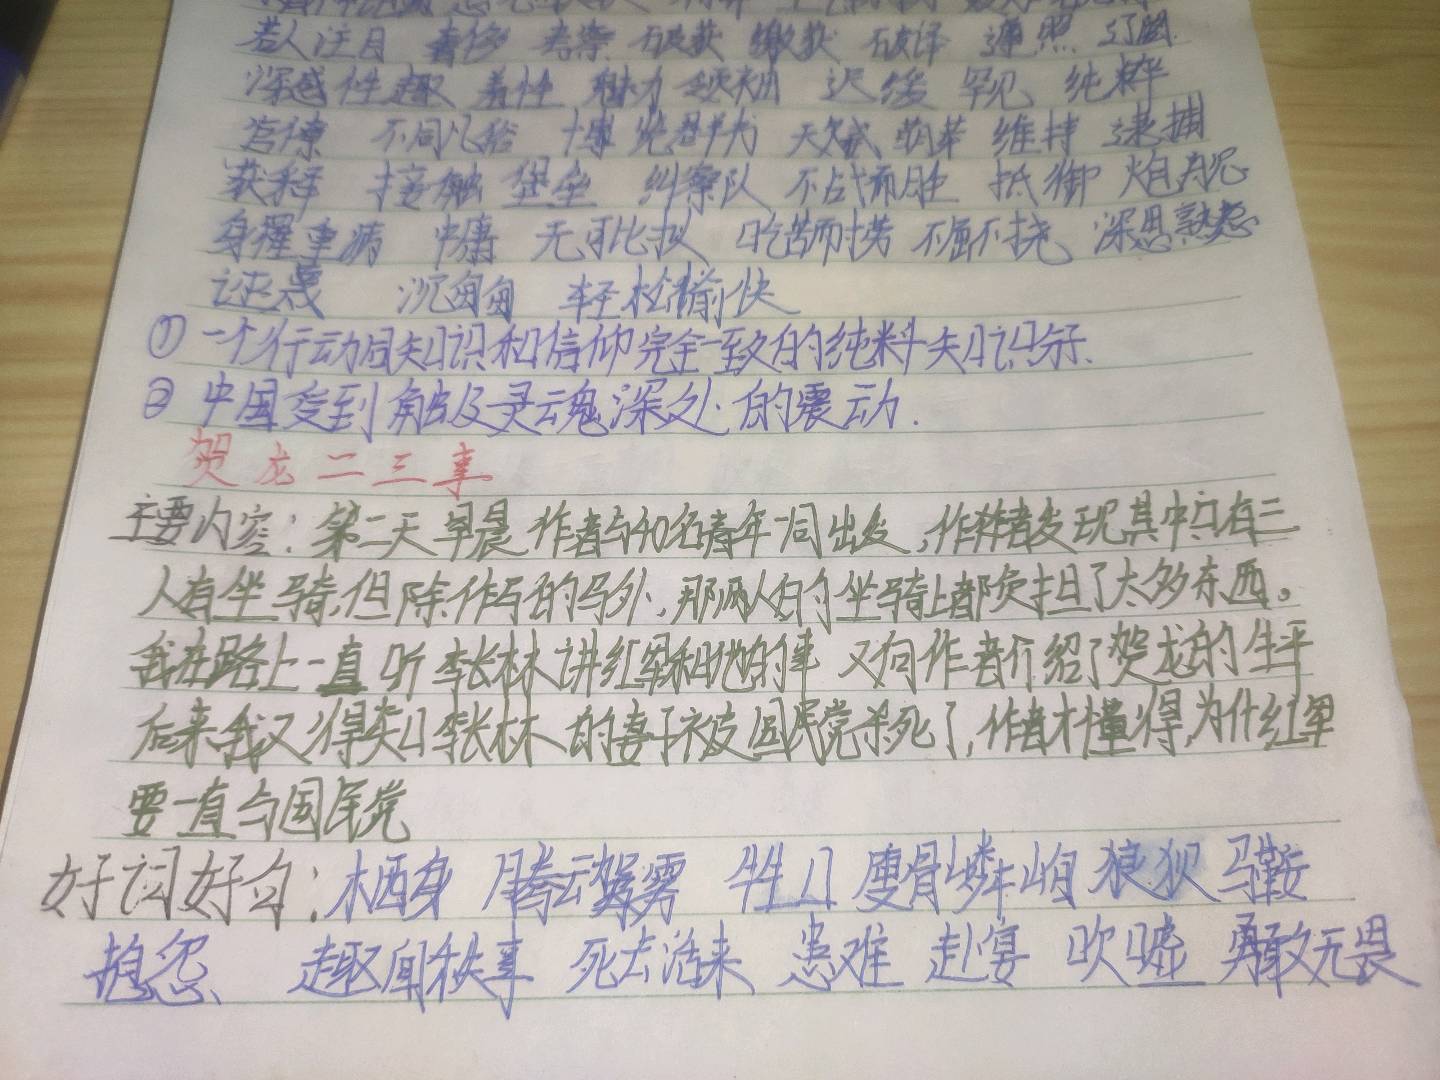 若人注目 奢侈 考察 破获 缴获 破译 遵照 辽阔
深感 性趣 羞怯 魅力 迟缓 罕见 纯粹
苦僚 不同凡俗 博览群书 天赋 萌芽 维持 逮捕
获释 接触 堡垒 纠察队 不战而胜 抵御
身罹重病 中肯 无可比拟 吃苦耐劳 不屈不挠 深思熟虑
沉甸甸 轻松愉快
① 一个行动同知识和信仰完全一致的纯料知识分子.
② 中国受到触及灵魂深处的震动.
贺龙二三事
主要内容：第二天早晨作者与40名青年一同出发,作者发现其中只有三
人有坐骑,但除作者的马外,那两人的坐骑上都负担了太多东西。
我在路上一直听李长林讲红军和他的事 又向作者介绍了贺龙的生平
后来我又得知李长林的妻子被国民党杀死了,作者才懂得,为什红军
要一直与国民党
好词好句：栖身 腾云驾雾 牲口 瘦骨嶙峋 狼狈 马鞍
抱怨 趣闻轶事 死去活来 患难 赴宴 吹嘘 勇敢无畏